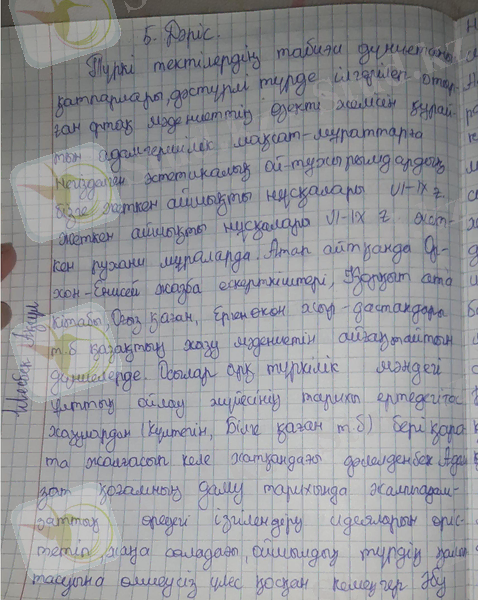 5. Дәріс.
Түркі тектілердің табиғи дүниетаным
қатпарлары, дәстүрлі түрде ілгерілеп отыр-
ған ортақ мәдениеттің өзекті желісін құрай-
тын адамгершілік мақсат-мұраттарға
негізделген эстетикалық ой-тұжырымдардың
бізге жеткен айшықты нұсқалары VI-IX ғ.
жеткен айшықты нұсқалары VI-IX ғ. жет-
кен рухани мұраларда. Атап айтқанда Ор-
хон-Енисей жазба ескерткіштері, Қорқыт ата
кітабы, Оғыз қаған, Ергенекон жыр-дастандары
т.б қазақтың жазу мәдениетін айғақтайтын
дүниелерде. Осылар арқ түркілік мәндегі
ұлттық ойлау жүйесінің тарихы ертедегі тас
жазулардан (Күлтегін, Білге қаған т.б) бері қара
та жалғасып келе жатқандағы дәлелденбек. Адам
зат қоғамның даму тарихында жалпыадам-
заттық өредегі ізгілендіру идеяларын өріс-
тетіп жаңа сападағы, ойшылдық түрдің қалып
тасуына өлшеусіз үлес қосқан кемеңгер Әбу